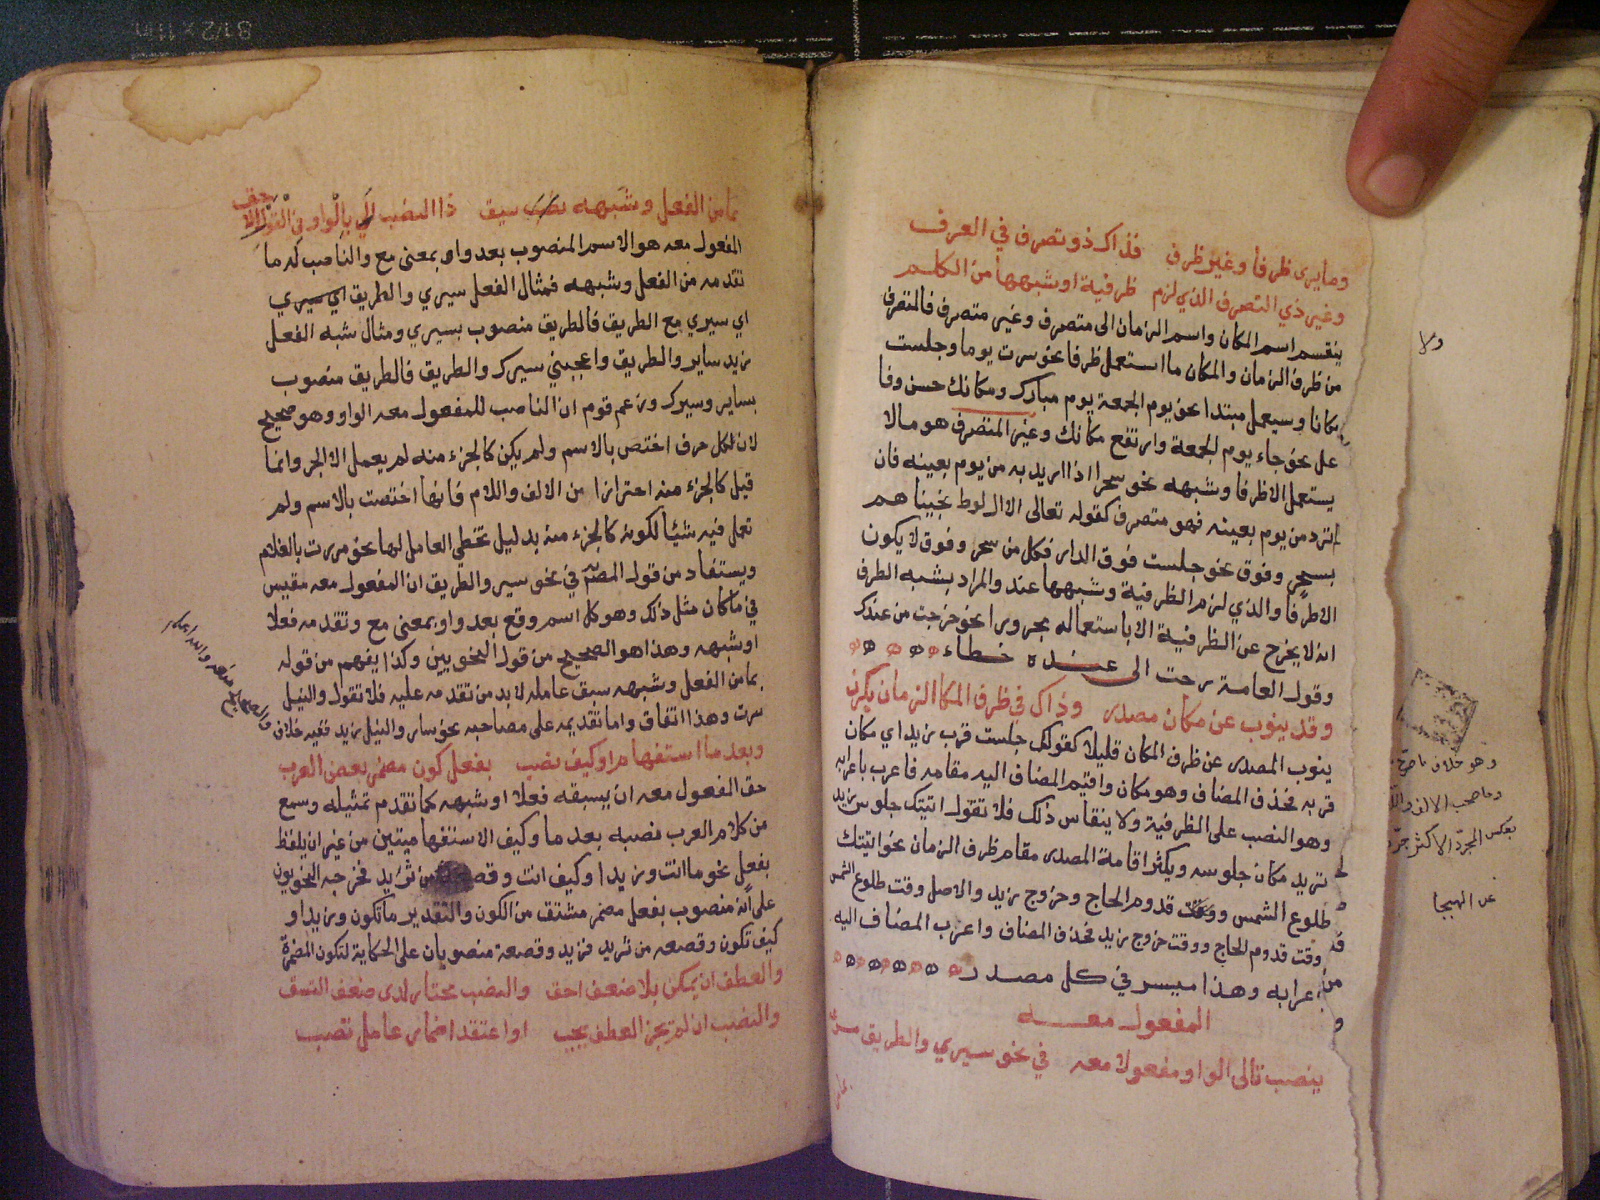 وما يرى ظرفا وغير ظرف فذاك ذو تصرف في العرف
وغير ذي التصرف الذي لزم ظرفية او شبهها من الكلم
ينقسم اسم المكان واسم الزمان الى متصرف وغير متصرف فالمتصرف
من ظرف الزمان والمكان ما استعمل ظرفا نحو سرت يوما وجلست
مكانا وسيعمل مبتدا نحو يوم الجمعة يوم مبارك ومكانك حسن وفا
على نحو جاء يوم الجمعة وارتفع مكانك وغير المتصرف هو مالا
يستعمل الا ظرفا وشبهه نحو سحر اذا اريد به من يوم بعينه فان
لم ترد من يوم بعينه فهو متصرف كقوله تعالى الا ال لوط نجيناهم
بسحر وفوق نحو جلست فوق الدار فكل من سحر وفوق لا يكون
الا ظرفا والذي لزم الظرفية وشبهها عند والمراد بشبه الظرف
انه لا يخرج عن الظرفية الا باستعماله مجرورا نحو خرجت من عندك
وقول العامة رحت الى عنده خطاء
وقد ينوب عن مكان مصدر وذاك في ظرف الزمان يكثر
ينوب المصدر عن ظرف المكان قليلا كقولك جلست قرب زيد اي مكان
قربه فحذف المضاف وهو مكان واقيم المضاف اليه مقامه فاعرب باعرابه
وهو النصب على الظرفية ولا ينقاس ذلك فلا تقول اتيتك جلوس زيد
تريد مكان جلوسه ويكثر اقامة المصدر مقام ظرف الزمان نحو اتيتك
طلوع الشمس ووقت قدوم الحاج وخروج زيد والاصل وقت طلوع الشمس
وقت قدوم الحاج ووقت خروج زيد فحذف المضاف واعرب المضاف اليه
اعرابه وهذا ميسر في كل مصدر
المفعول معه
ينصب تالى الواو مفعولا معه في نحو سيري والطريق مسرعه
ولا
وهو خلاف ما صرح
وصاحب الالف واللا
بعكس المجرد الاكثر
عن الهيجا
بما من الفعل وشبهه سبق ذا النصب لا بالواو في القول الاحق
المفعول معه هو الاسم المنصوب بعد واو بمعنى مع والناصب له ما
تقدمه من الفعل وشبهه فمثال الفعل سيري والطريق اي سيري
اي سيري مع الطريق فالطريق منصوب بسيري ومثال شبه الفعل
زيد ساير والطريق واعجبني سيرك والطريق فالطريق منصوب
بساير وسيرك وزعم قوم ان الناصب للمفعول معه الواو وهو صحيح
لان كل حرف اختص بالاسم ولم يكن كالجزء منه لم يعمل الا الجر وانما
قيل كالجزء منه احترازا من الالف واللام فانها اختصت بالاسم ولم
تعمل فيه شيئا لكونه كالجزء منه بدليل تخطي العامل لها نحو مررت بالغلام
ويستفاد من قول المصنف في نحو سير والطريق ان المفعول معه مقيس
في ما كان مثل ذلك وهو كل اسم وقع بعد واو بمعنى مع وتقدمه فعلا
او شبهه وهذا هو الصحيح من قول النحويين وكذا يفهم من قوله
بما من الفعل وشبهه سبق عامله لا بد من تقدمه عليه فلا تقول والنيل
سرت وهذا اتفاق واما تقديمه على مصاحبه نحو سار والنيل زيد ففيه خلاف
والصحيح منعه والله اعلم
وبعد ما استفهام او كيف نصب بفعل كون مضمر بعض العرب
حق المفعول معه ان يسبقه فعلا او شبهه كما تقدم تمثيله وسمع
من كلام العرب نصبه بعد ما وكيف الاستفهاميتين من غير ان يلفظ
بفعل نحو ما انت وزيدا وكيف انت وقصعة من ثريد فخرجه النحويون
على انه منصوب بفعل مضمر مشتق من الكون والتقدير ما تكون وزيدا و
كيف تكون وقصعة من ثريد فزيد وقصعة منصوبان على الحكاية لتكون المضمرة
والعطف ان يمكن بلا ضعف احق والنصب مختار لدى ضعف النسق
والنصب ان لم يجز العطف يجب او اعتقد اضمار عامل تصب